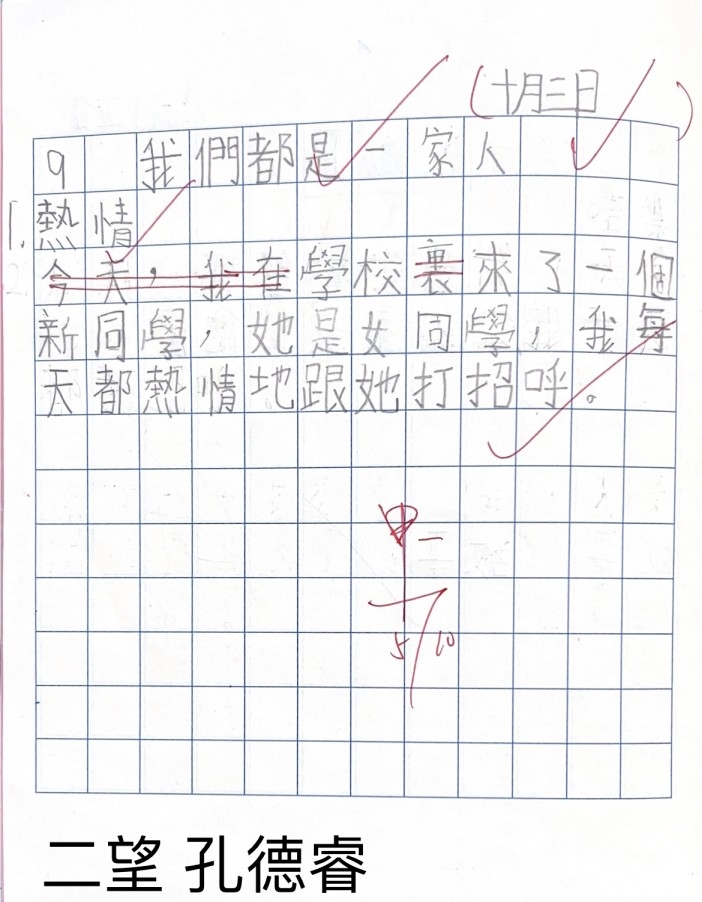 (十月三日)
9 我們都是一家人
1. 熱情
今天，我在學校裏來了一個
新同學，她是女同學，我每
天都熱情地跟她打招呼。
甲-
5/10
二望 孔德睿